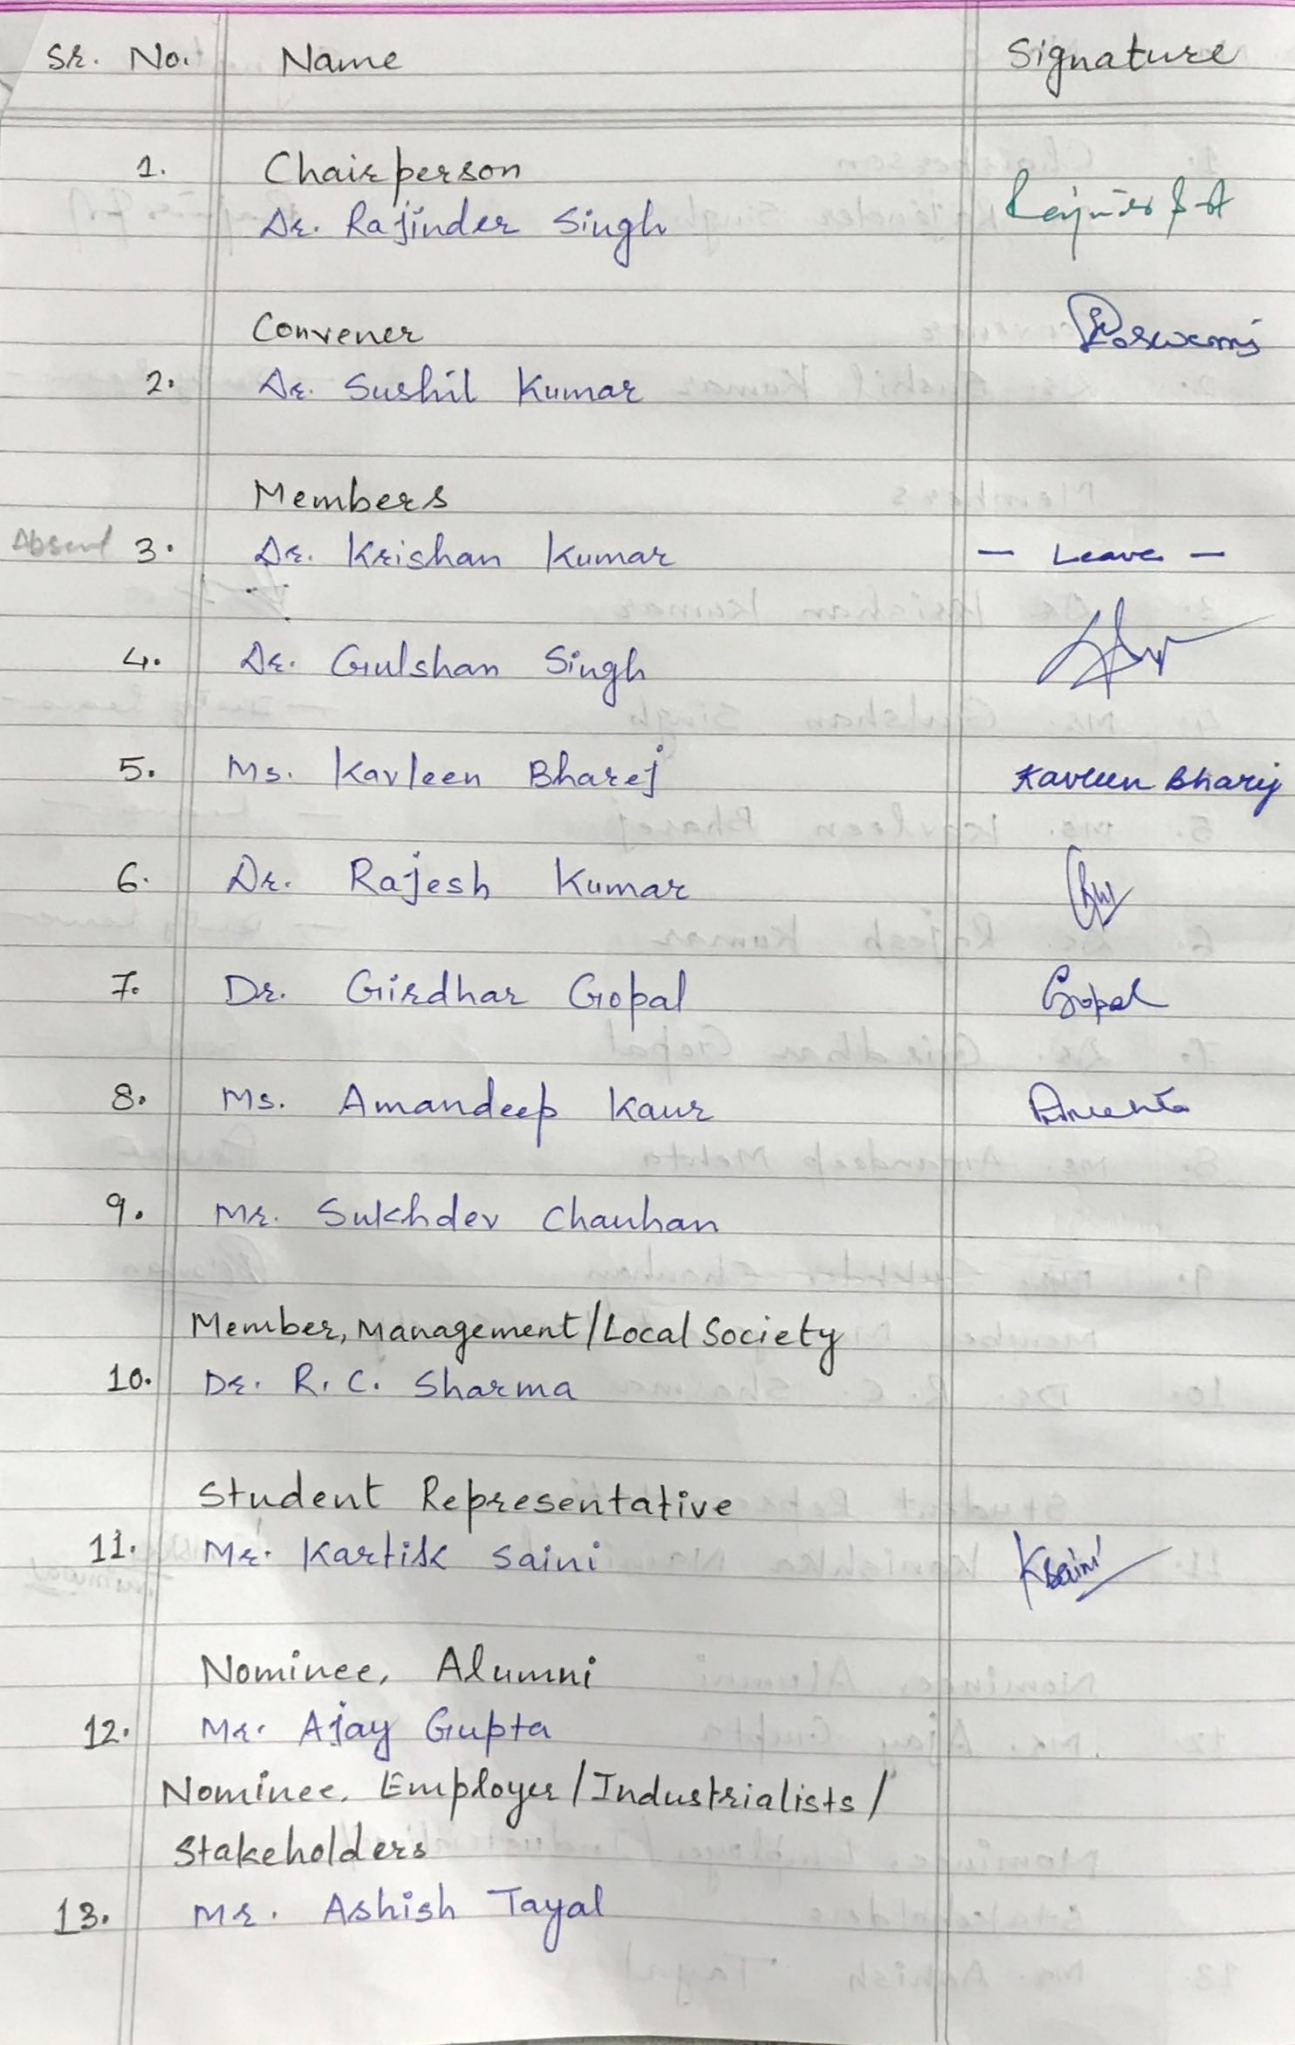 Sr. No. Name Signature
1. Chairperson
Dr. Rajinder Singh
Convener
2. Dr. Sushil Kumar
Members
Absent 3. Dr. Krishan Kumar - Leave -
4. Dr. Gulshan Singh
5. Ms. Kavleen Bharej Kavleen Bharij
6. Dr. Rajesh Kumar
7. Dr. Girdhar Gopal Gopal
8. Ms. Amandeep Kaur
9. Mr. Sukhdev Chauhan
Member, Management/Local Society
10. Dr. R. C. Sharma
Student Representative
11. Mr. Kartik Saini KSaini
Nominee, Alumni
12. Mr. Ajay Gupta
Nominee, Employer/Industrialists/
Stakeholders
13. Mr. Ashish Tayal